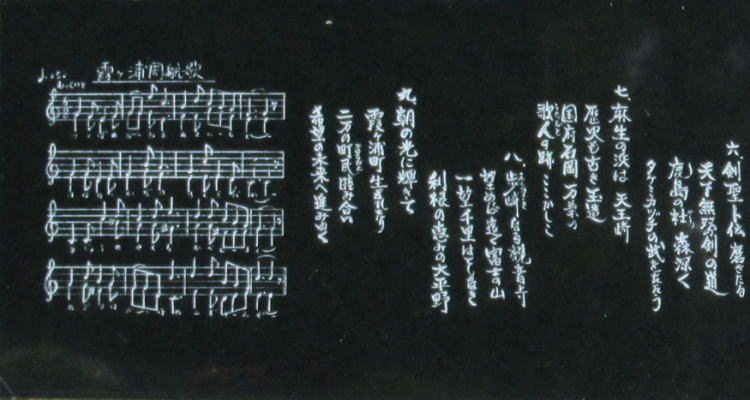 六、剣聖卜伝 磨きたる
天下無双剣の道
鹿島の杜 森深く
タケミカヅチの武をたたう
七、麻生の浜は 天王崎
歴史も古き玉造
国府名聞 万葉の
歌人の跡 ここかしこ
八、出島 観音寺
望めば遠く富士の山
一望千里はてもなく
利根の恵みの大平野
九、朝の光に輝きて
霞ヶ浦町生れたり
二万の町民睦み合い
希望の未来へ進みゆく
霞ヶ浦周航歌